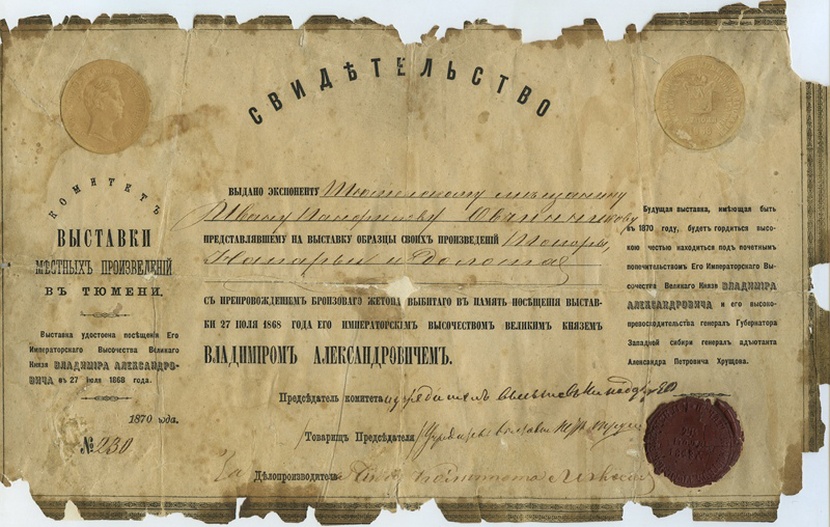 СВИДѢТЕЛЬСТВО
КОМИТЕТЪ
ВЫСТАВКИ
МѢСТНЫХЪ ПРОИЗВЕДЕНІЙ
ВЪ ТЮМЕНИ.
Выставка удостоена посѣщенія Его
Императорскаго Высочества Великаго
Князя ВЛАДИМІРА АЛЕКСАНДРО-
ВИЧА въ 27 іюля 1868 года.
1870 года.
№ 230
ВЫДАНО ЭКСПОНЕНТУ Тюменскому мѣщанину
Ивану Панфилову Овчинникову
ПРЕДСТАВЛЯВШЕМУ НА ВЫСТАВКУ ОБРАЗЦЫ СВОИХЪ ПРОИЗВЕДЕНІЙ Топоры,
Напарьи и Долота
СЪ ПРЕПРОВОЖДЕНІЕМЪ БРОНЗОВАГО ЖЕТОНА ВЫБИТАГО ВЪ ПАМЯТЬ ПОСѢЩЕНІЯ ВЫСТАВ-
КИ 27 ІЮЛЯ 1868 ГОДА ЕГО ИМПЕРАТОРСКІМЪ ВЫСОЧЕСТВОМЪ ВЕЛИКИМЪ КНЯЗЕМЪ
ВЛАДИМІРОМЪ АЛЕКСАНДРОВИЧЕМЪ.
Предсѣдатель комитета
Товарищъ Предсѣдателя
За Дѣлопроизводитель
Комитета
Будущая выставка, имѣющая быть
въ 1870 году, будетъ гордиться высо-
кою честью находиться подъ почетнымъ
попечительствомъ Его Императорскаго Вы-
сочества Великаго Князя ВЛАДИМІРА
АЛЕКСАНДРОВИЧА и его высоко-
превосходительства генералъ Губернатора
Западной Сибири генералъ адъютанта
Александра Петровича Хрущова.